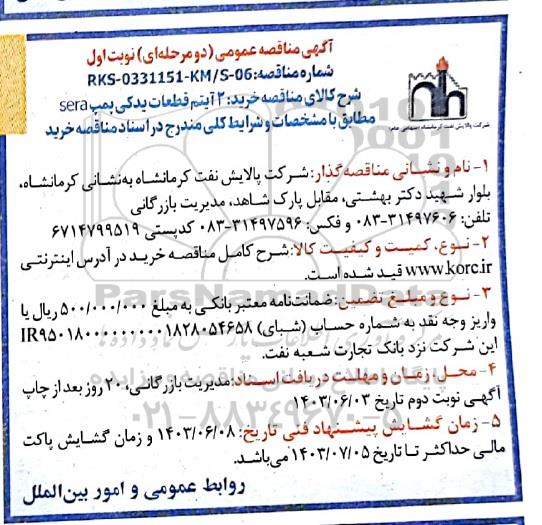 آگهی مناقصه عمومی (دو مرحله‌ای) نوبت اول
شماره مناقصه: RKS-0331151-KM/S-06
شرح کالای مناقصه خرید: ۲ آیتم قطعات یدکی پمپ sera
مطابق با مشخصات و شرایط کلی مندرج در اسناد مناقصه خرید
شرکت پالایش نفت کرمانشاه (سهامی عام)
۱- نام و نشانی مناقصه‌گذار: شرکت پالایش نفت کرمانشاه به‌نشانی کرمانشاه،
بلوار شهید دکتر بهشتی، مقابل پارک شاهد، مدیریت بازرگانی
تلفن: ۳۱۴۹۷۶۰۶-۰۸۳ و فکس: ۳۱۴۹۷۵۹۶-۰۸۳ کدپستی ۶۷۱۴۷۹۹۵۱۹
۲- نوع، کمیت و کیفیت کالا: شرح کامل مناقصه خرید در آدرس اینترنتی
www.korc.ir قید شده است.
۳- نوع و مبلغ تضمین: ضمانت‌نامه معتبر بانکی به مبلغ ۵۰۰/۰۰۰/۰۰۰ ریال یا
واریز وجه نقد به شماره حساب (شبای) IR۹۵۰۱۸۰۰۰۰۰۰۰۰۰۰۱۸۲۸۰۵۴۶۵۸
این شرکت نزد بانک تجارت شعبه نفت.
۴- محل، زمان و مهلت دریافت اسناد: مدیریت بازرگانی، ۲۰ روز بعد از چاپ
آگهی نوبت دوم تاریخ ۱۴۰۳/۰۶/۰۳
۵- زمان گشایش پیشنهاد فنی تاریخ: ۱۴۰۳/۰۶/۰۸ و زمان گشایش پاکت
مالی حداکثر تا تاریخ ۱۴۰۳/۰۷/۰۵ می‌باشد.
روابط عمومی و امور بین‌الملل
ParsNamadData
۰۲۱-۸۸۳۴۹۶۷۰-۵